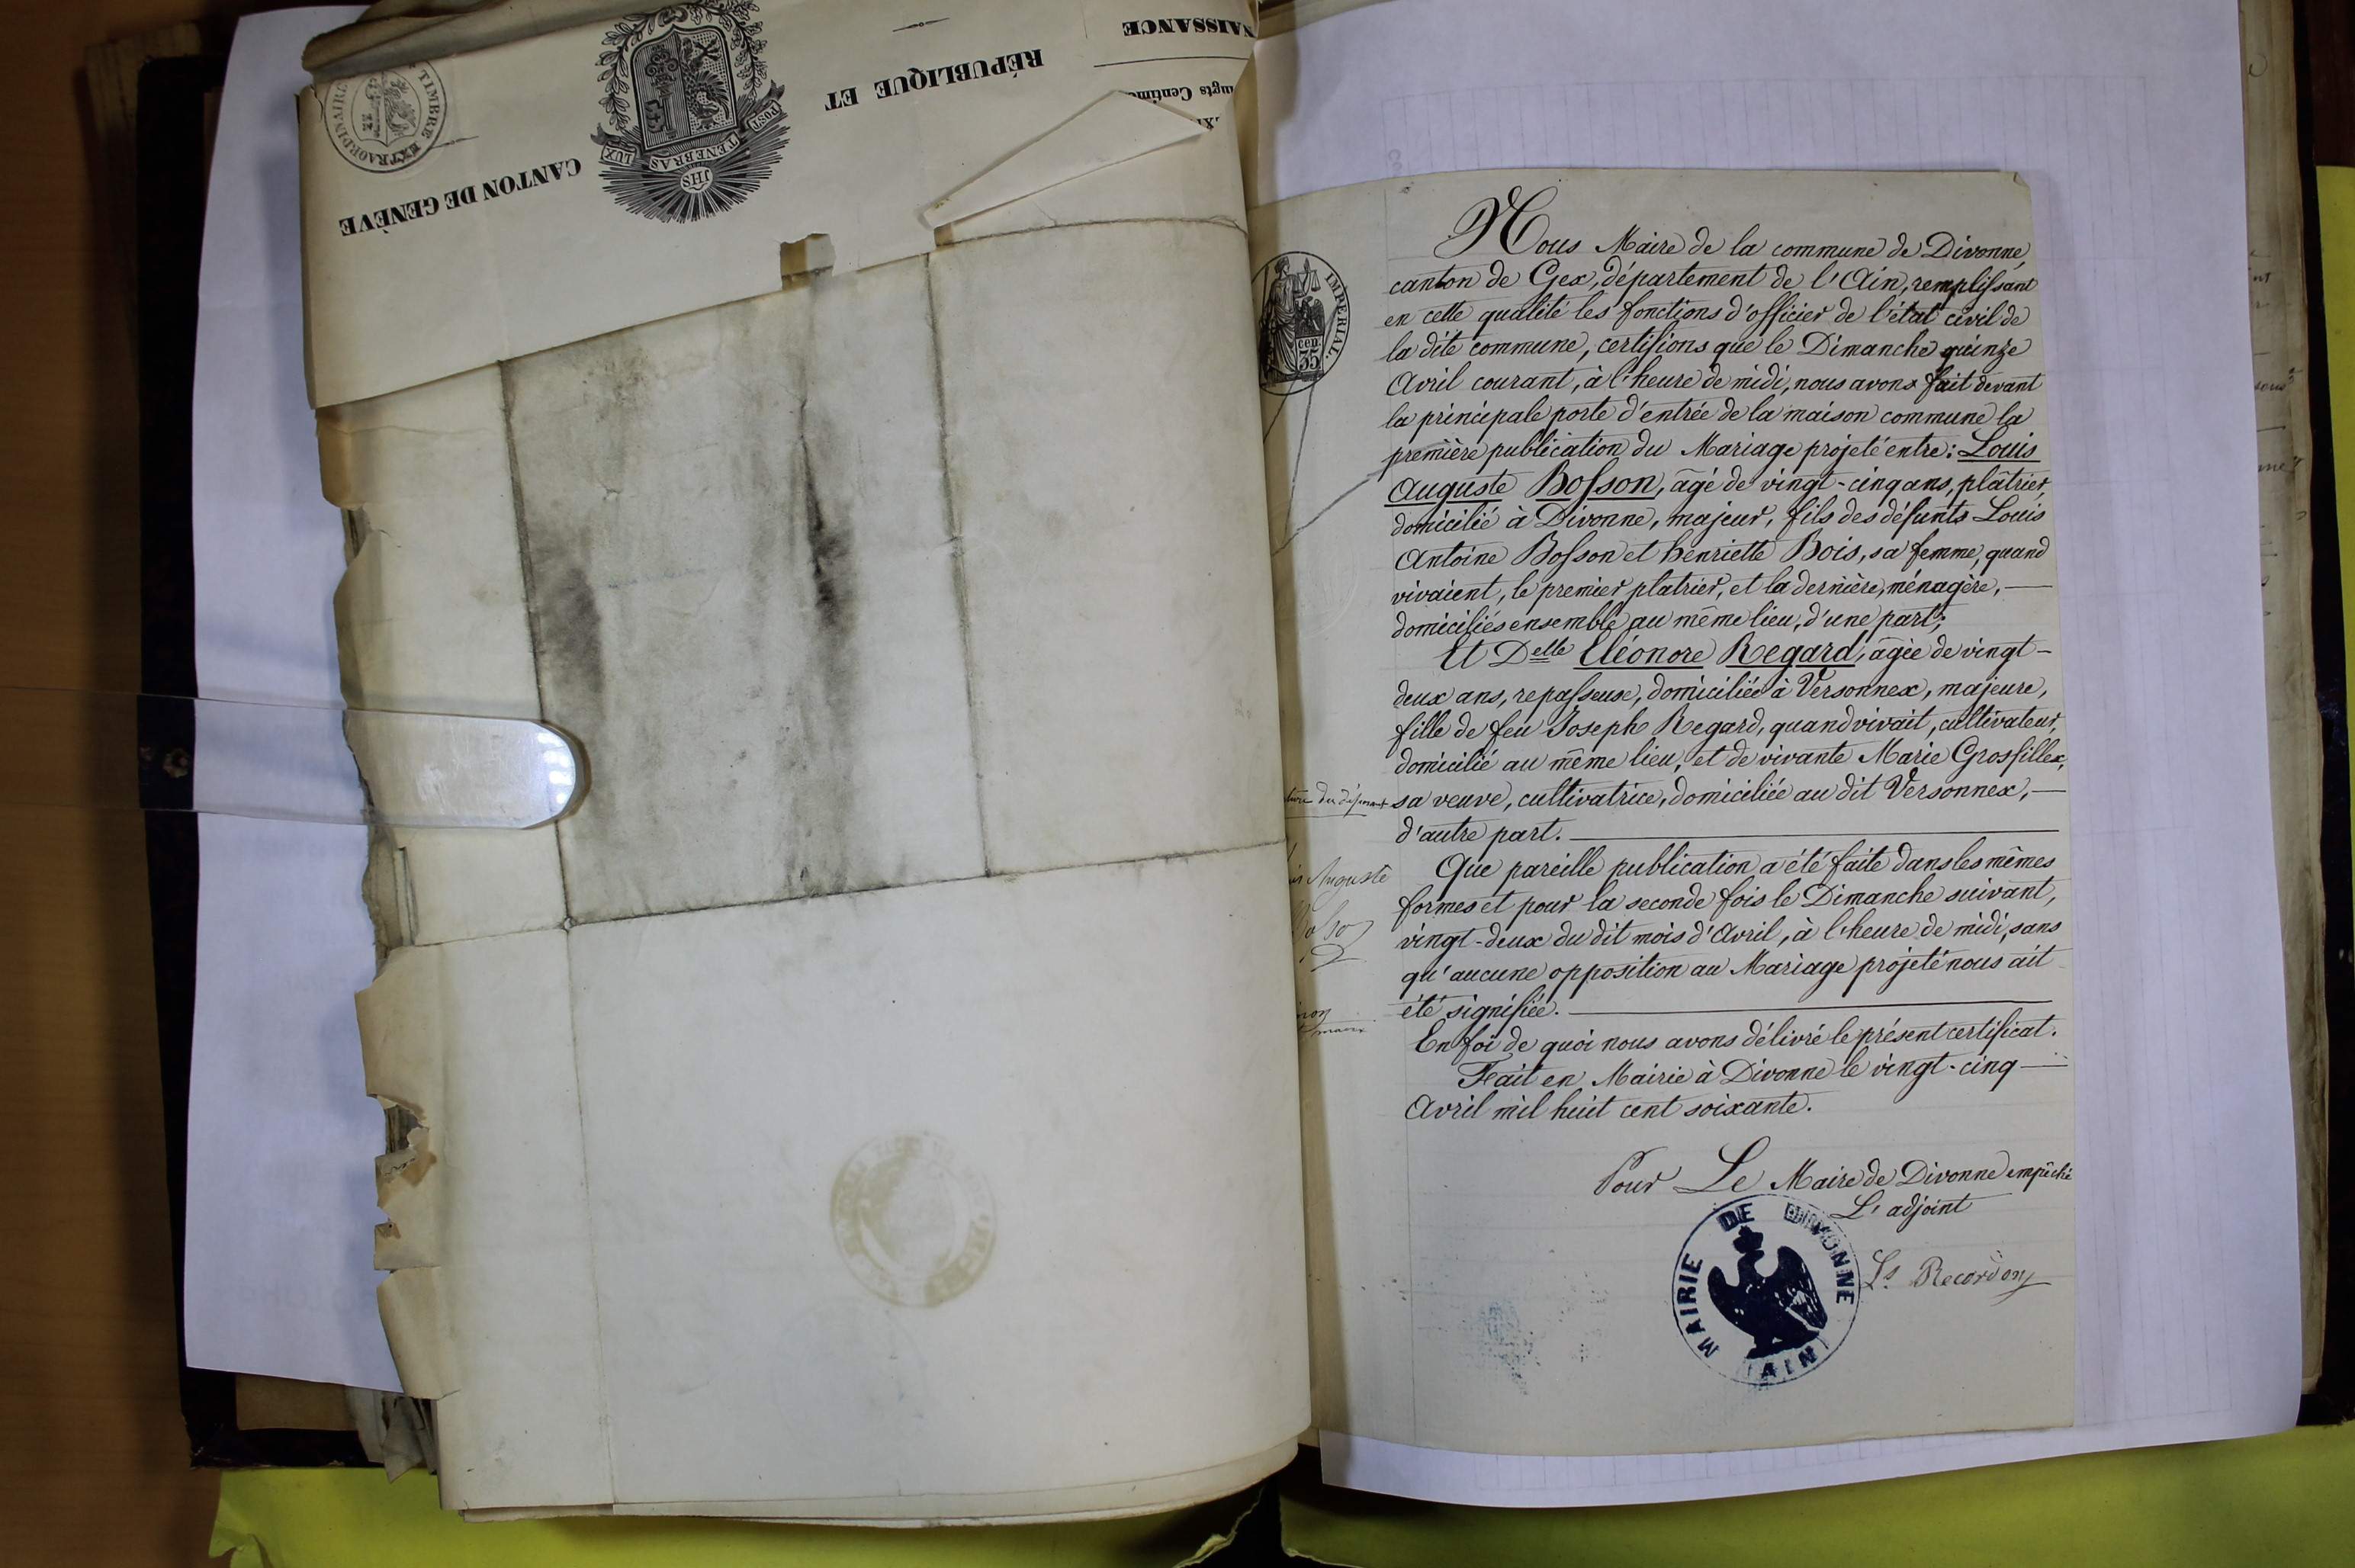 NAISSANCE
RÉPUBLIQUE ET
CANTON DE GENÈVE
TIMBRE EXTRAORDINAIRE
POST TENEBRAS LUX
JHS
IMPERIAL.
35
CEN.
Nous Maire de la commune de Divonne,
canton de Gex, département de l'Ain, remplissant
en cette qualité les fonctions d'officier de l'état civil de
la dite commune, certifions que le Dimanche quinze
Avril courant, à l'heure de midi, nous avons fait devant
la principale porte d'entrée de la maison commune la
première publication du Mariage projeté entre: Louis
Auguste Bosson, âgé de vingt-cinq ans, plâtrier,
domicilié à Divonne, majeur, fils des défunts Louis
Antoine Bosson et henriette Bois, sa femme, quand
vivaient, le premier platrier, et la dernière, ménagère, —
domiciliés ensemble au même lieu, d'une part;
Et Delle Eléonore Regard, âgée de vingt-
deux ans, repasseuse, domiciliée à Versonnex, majeure,
fille de feu Joseph Regard, quand vivait, cultivateur,
domicilié au même lieu, et de vivante Marie Grosfillex,
sa veuve, cultivatrice, domiciliée au dit Versonnex, —
d'autre part. —
Que pareille publication a été faite dans les mêmes
formes et pour la seconde fois le Dimanche suivant,
vingt-deux du dit mois d'Avril, à l'heure de midi, sans
qu'aucune opposition au Mariage projeté nous ait
été signifiée. —
En foi de quoi nous avons délivré le présent certificat.
Fait en Mairie à Divonne le vingt-cinq —
Avril mil huit cent soixante.
Pour Le Maire de Divonne empêché
L'adjoint
Ls Recordon
MAIRIE DE DIVONNE
(AIN)
Auguste